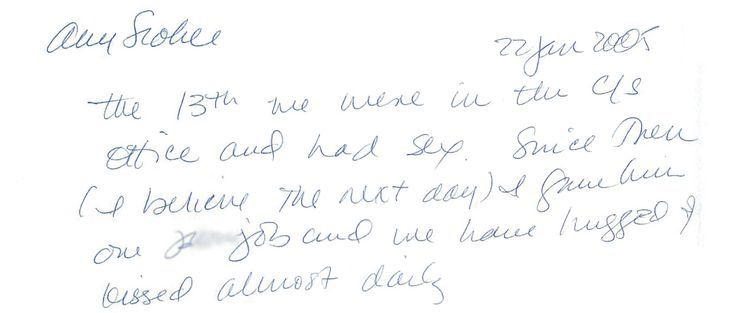 Amy 22 Jan 2005
the 13th we were in the C/s
office and had sex. Since Then
(I believe The next day) I gave him
one job and we have hugged &
kissed almost daily